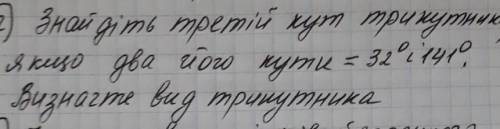 2) Знайдіть третій кут трикутник
якщо два його кути = 32° і 141°.
Визначте вид трикутника